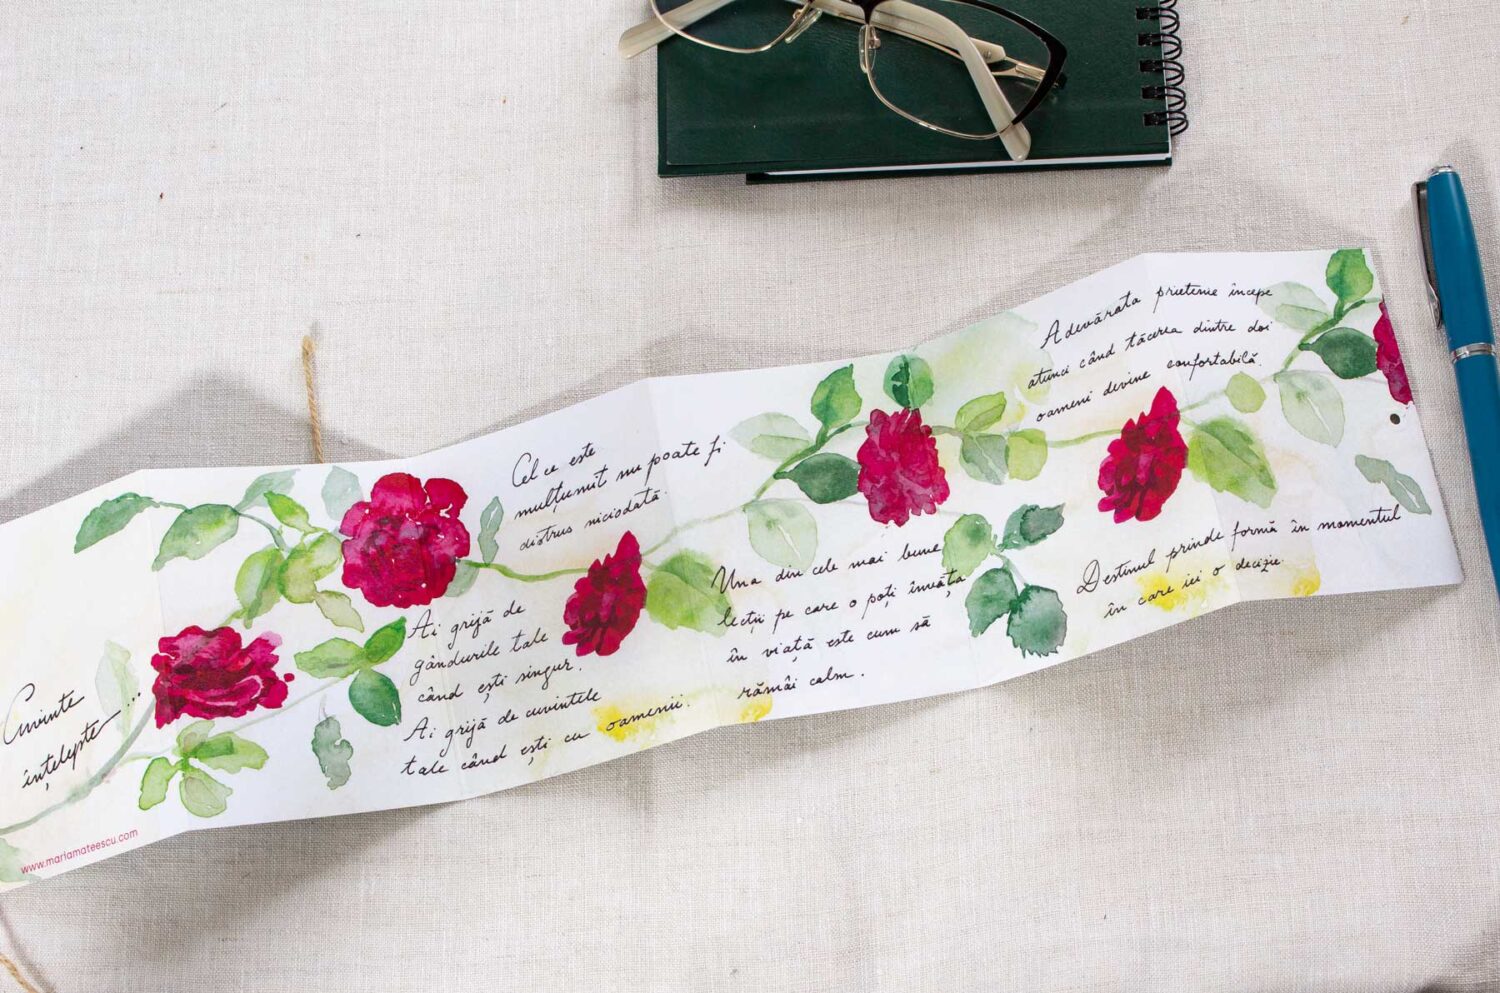 Cuvinte
înțelepte...
www.mariamateescu.com
Cel ce este
mulțumit nu poate fi
distrus niciodată.
Ai grijă de
gândurile tale
când ești singur.
Ai grijă de cuvintele
tale când ești cu oamenii.
Una din cele mai bune
lecții pe care o poți învăța
în viață este cum să
rămâi calm.
Adevărata prietenie începe
atunci când tăcerea dintre doi
oameni devine confortabilă.
Destinul prinde formă în momentul
în care iei o decizie.